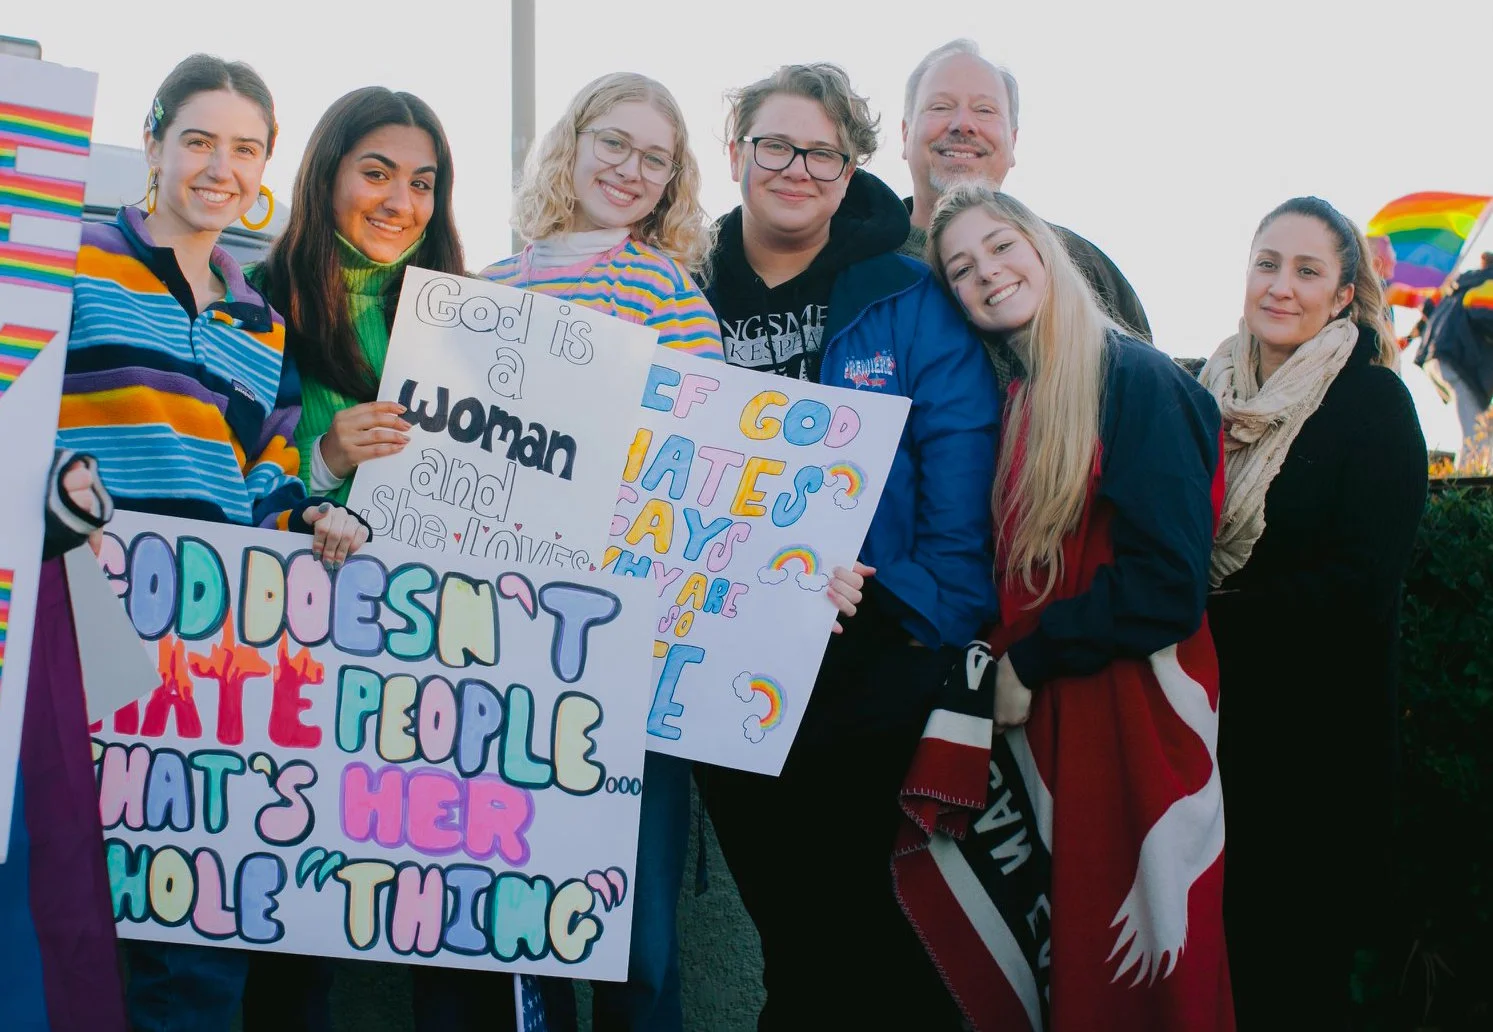 God is
a
woman
and
She Loves
IF GOD
HATES
GAYS
WHY ARE
SO
GOD DOESN'T
HATE PEOPLE...
THAT'S HER
WHOLE "THING"
PREMIERE